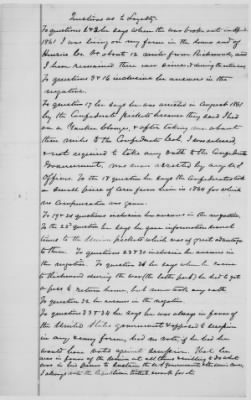 Questions as to Loyalty
To questions 1 & 2 he says when the war broke out in April
1861 I was living on my farm in the lower end of
Henrico Co. Va about 12 miles from Richmond, and
I have remained there ever since & during the
To question 3 & 16 inclusive he answers in the
negative.
To question 17 he says he was arrested in August 1861
by the Confederate pickets because they said I had
on a Yankee blouse, & after taking me about
three miles to the Confederate I was released
& not required to take any oath to the Confederate
Government, nor ever arrested by any U S
Officer. To the 18 question he says the Confederates took
a small piece of corn from him in 1864 for which
no compensation was given.
To 19 & 21 questions inclusive he answers in the negative
To the 22 question he says he gave information several
times to the Union pickets which was of great advantage
to them. To questions 23 & 25 inclusive he answers in
the negative. To question 26 he says when he came
to Richmond during the war (the latter part) he had to get
a pass to return home, but never took any oath
To question 32 he answers in the negative.
To questions 33 & 34 he says he was always in favor of
the United States government & opposed to secession
in any & every form, had no vote, if he had he
would have voted against secession. That he
was in favor of the Union at all times & do what
was in his power to sustain the U S government